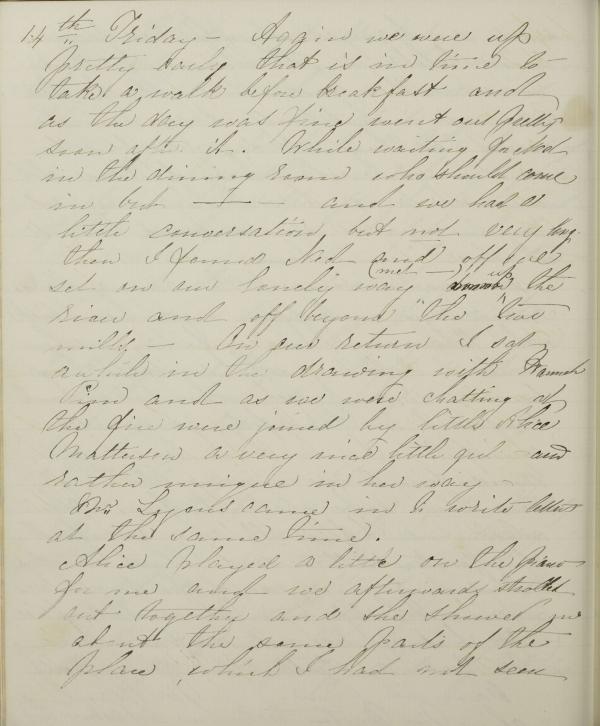 14th Friday - Again we were up
pretty early that is in time to
take a walk before breakfast and
as the day was fine went out pretty
soon aft it. While waiting for Ned
in the dining room who should come
in but ——— and we had a
little conversation, but not very long
then I found Ned and off we
set on our lonely way (met —) up the
river and off beyond "the two
mills" - On our return I sat
awhile in the drawing with Hannah
Pim and as we were chatting at
the fire were joined by little Alice
Matterson a very nice little girl and
rather unique in her way
Mrs Lyons came in to write letters
at the same time.
Alice played a little on the piano
for me and we afterwards strolled
out together and she showed me
about the some parts of the
place, which I had not seen